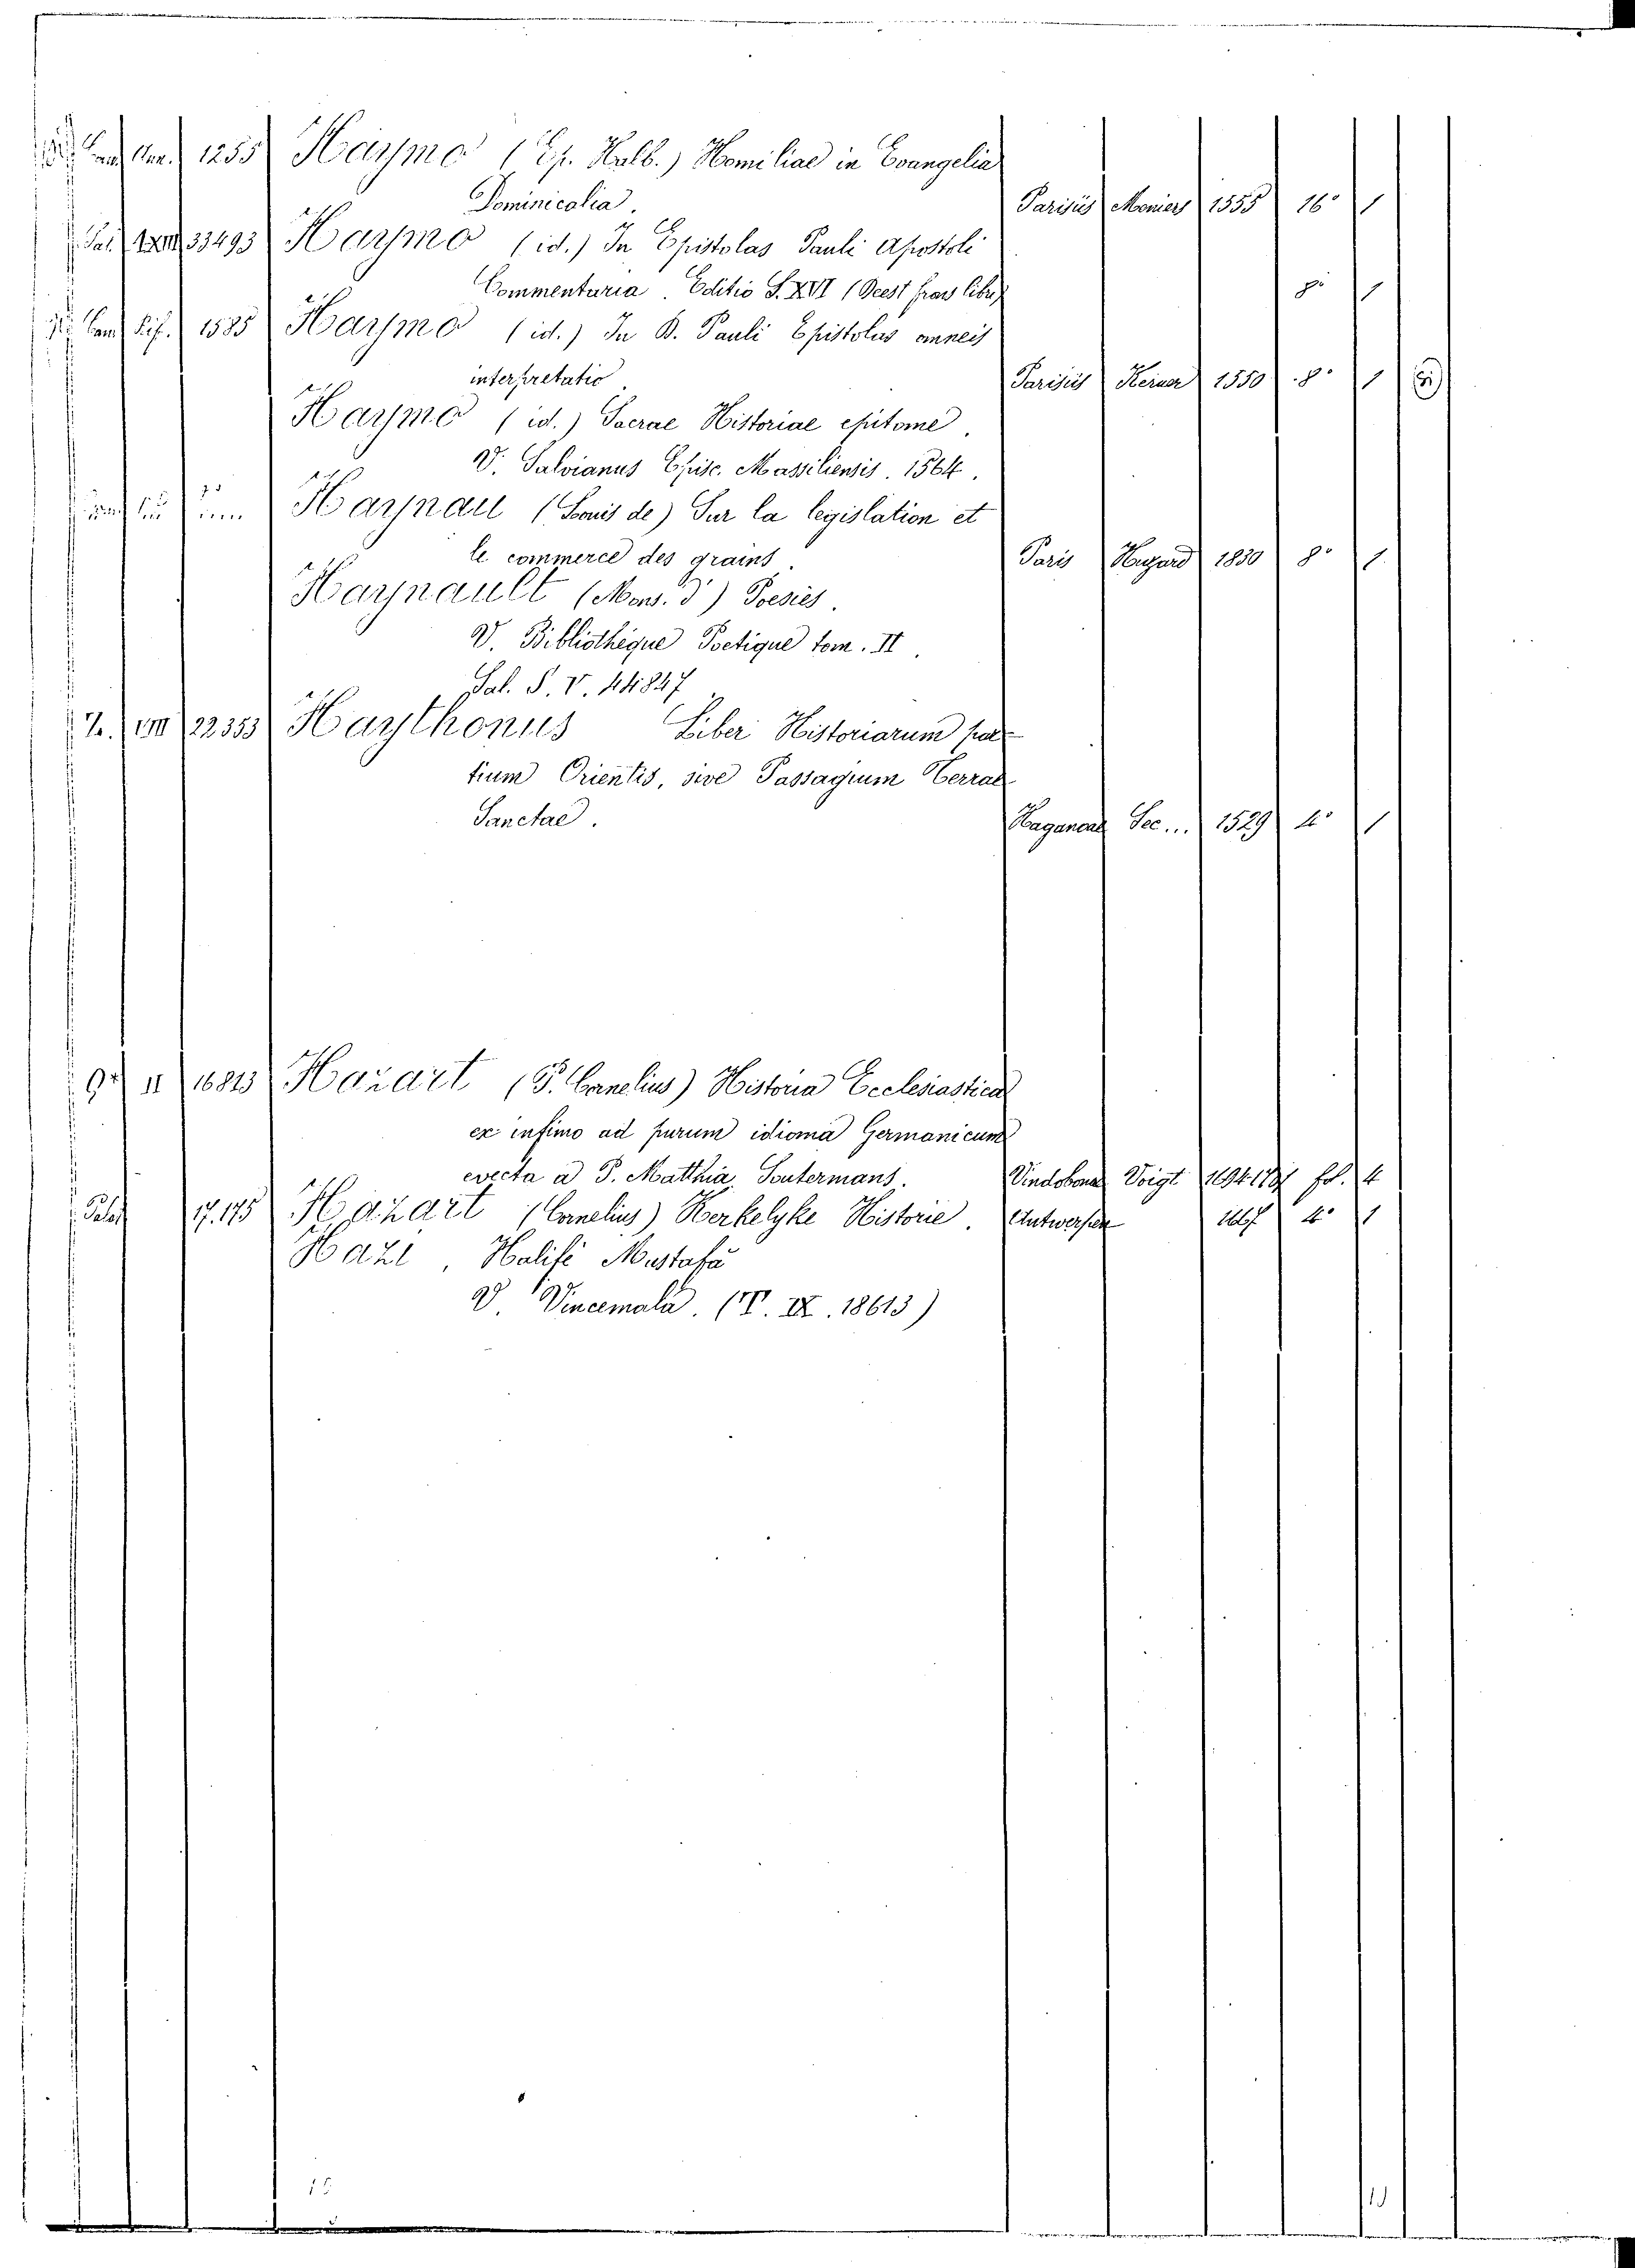 1255 Haymo (Ep. Halb.) Homiliae in Evangelia
Dominicalia. Parisiis Meniers 1555 16° 1
Sal. 33493 Haymo (id.) In Epistolas Pauli Apostoli
Commentaria. Editio S. XVI (Deest frons libri) 8° 1
1585 Haymo (id.) In B. Pauli Epistolas omneis
interpretatio Parisiis Kerver 1550 8° 1
Haymo (id.) Sacrae Historiae epitome.
V. Salvianus Episc. Massiliensis. 1564.
Haynau (Louis de) Sur la legislation et
le commerce des grains. Paris 1830 8° 1
Haynault (Mons. d') Poesies.
V. Bibliothèque Poetique tom. II.
Sal. S. V. 44847
VIII 22353 Haythonus Liber Historiarum par
tium Orientis, sive Passagium Terrae
Sanctae. Haganoae Sec... 1529 4° 1
II Hazart (P. Cornelius) Historia Ecclesiastica
ex infimo ad purum idioma Germanicum
evecta a P. Matthia Soutermans. Vindobonae Voigt fol. 4
17.175 Hazart (Cornelius) Kerkelyke Historie. Antwerpen 4° 1
Hazi, Halifé Mustafa
V. Vincemala. (T. IX. 18613)
15